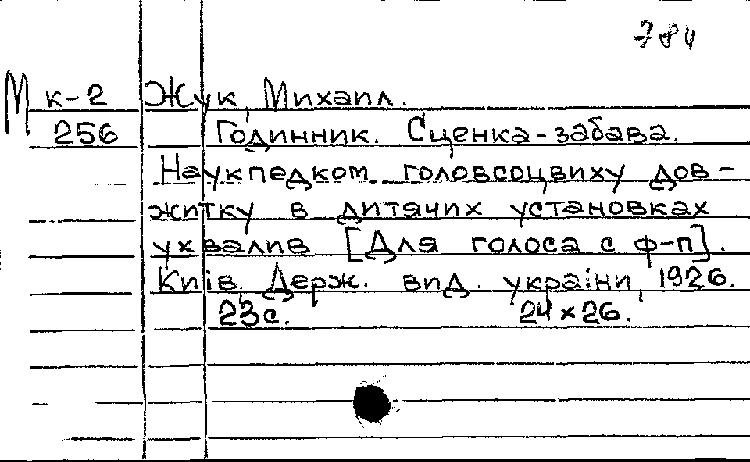 784
М к-2 Жук, Михаил.
256 Годинник. Сценка-забава.
Наукпедком головсоцвиху дов-
житку в дитячих установках
ухвалив [Для голоса с ф-п].
Київ, Держ. вид. україни, 1926.
23с. 24×26.